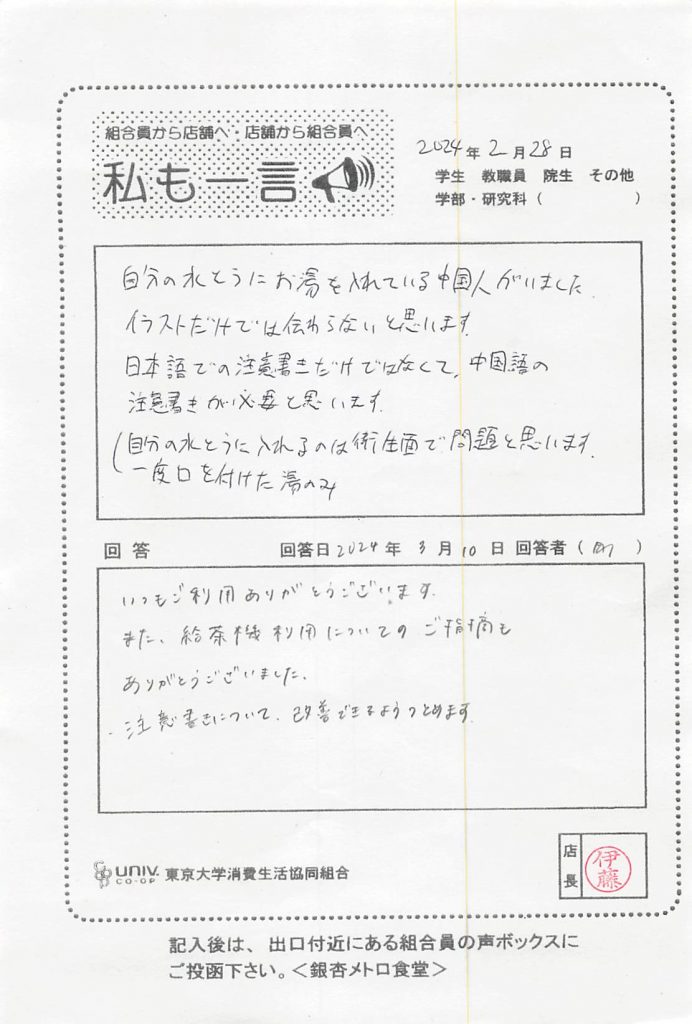 組合員から店舗へ・店舗から組合員へ
私も一言
2024年2月28日
学生 教職員 院生 その他
学部・研究科( )
自分の水とうにお湯を入れている中国人がいました
イラストだけでは伝わらないと思います
日本語での注意書きだけではなくて、中国語の
注意書きが必要と思います
(自分の水とうに入れるのは衛生面で問題と思います.
一度口を付けた湯のみ
回答 回答日2024年3月10日 回答者( )
いつもご利用ありがとうございます.
また、給茶機利用についてのご指摘も
ありがとうございました.
注意書きについて、改善できるようつとめます
店長
伊藤
UNIV. CO-OP 東京大学消費生活協同組合
記入後は、出口付近にある組合員の声ボックスに
ご投函下さい。<銀杏メトロ食堂>